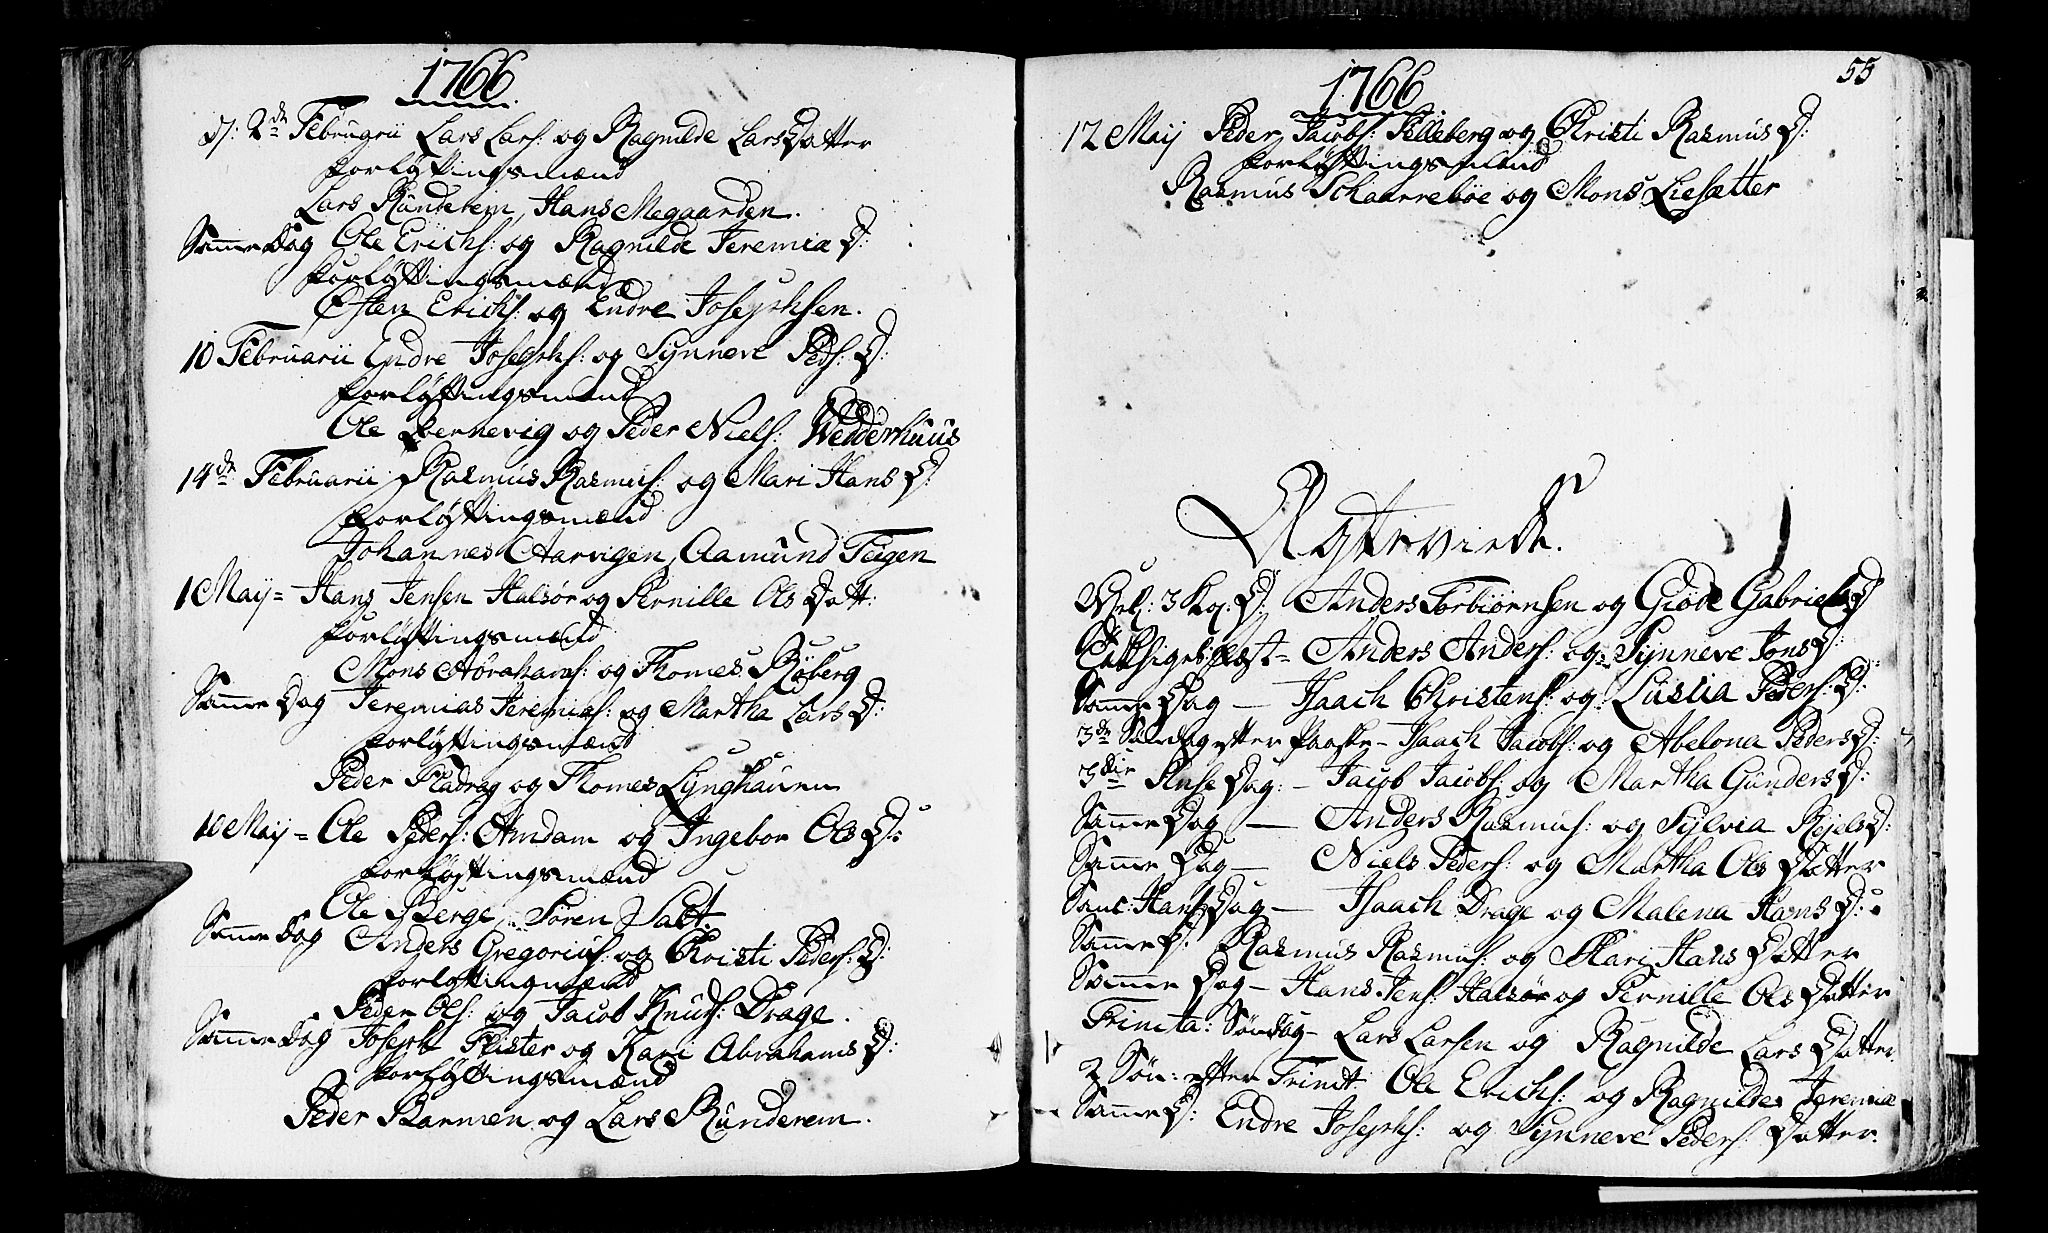 1766
D: 2de Februarii Lars Lars: og Ragnilde Lars Datter
forløftingsmænd
Lars Ründerem, Hans Megaarden.
Samme Dag Ole Erichs: og Ragnilde Jeremiæ D:
forløftingsmænd
Østen Erichs: og Endre Josephsen.
10 Februarii Endre Josephs: og Synneve Peds: D:
forløftingsmænd
Ole Bernevig og Peder Niels: Wedderhuus
14de Februarii Rasmus Rasmus: og Mari Hans D:
forløftingsmænd
Johannes Aarvigen, Aamund Teigen
1 May = Hans Jensen Halsør og Pernille Ols Datt:
forløftingsmænd
Mons Abrahams: og Thomes Ryberg
Samme Dag Jeremias Jeremias: og Martha Lars D:
forløftingsmænd
Peder Fladrag og Thomes Lynghauen
10 May = Ole Peders: Amdam og Ingebor Ols D:
forløftingsmænd
Ole Berge, Søren Salt.
Samme Dag Anders Gregorius: og Christi Peders: D:
forløftingsmænd
Peder Ols: og Jacob Knuds: Drage.
Samme Dag Joseph Flister og Kari Abrahams D:
forløftingsmænd
Peder Barmen og Lars Ründerem.
1766
55
12 May Peder Jacobs: Pelleberg og Christi Rasmus D:
forløftingsmænd
Rasmus Schaarrebøe og Mons Liesætter
Ægteviede.
3 Kog. D: Anders Torbiørnsen og Giøde Gabriels D
Anders Anders: og Synneve Jons D:
Samme Dag — Isaach Christens: og Luslia Peders: D:
3de Søndag efter Paaske - Isaach Jacobs: og Abelona Peders D:
3die Pinse Dag: - Jacob Jacobs: og Martha Gunders D:
Samme Dag — Anders Rasmus: og Sylvia Rejels D:
Samme Dag — Niels Peders: og Martha Ols Datter
Sanc: Hans Dag — Isaach Drage og Malena Hans D:
Samme D: Rasmus Rasmus: og Mari Hans Datter
Samme Dag - Hans Jens: Halsør og Pernille Ols Datter
Trinita: Søndag - Lars Larsen og Ragnilde Lars Datter
2 Søn: efter Trinit. Ole Erichs: og Ragnilde Jeremiæ
Samme D: Endre Josephs: og Synneve Peders: Datter.